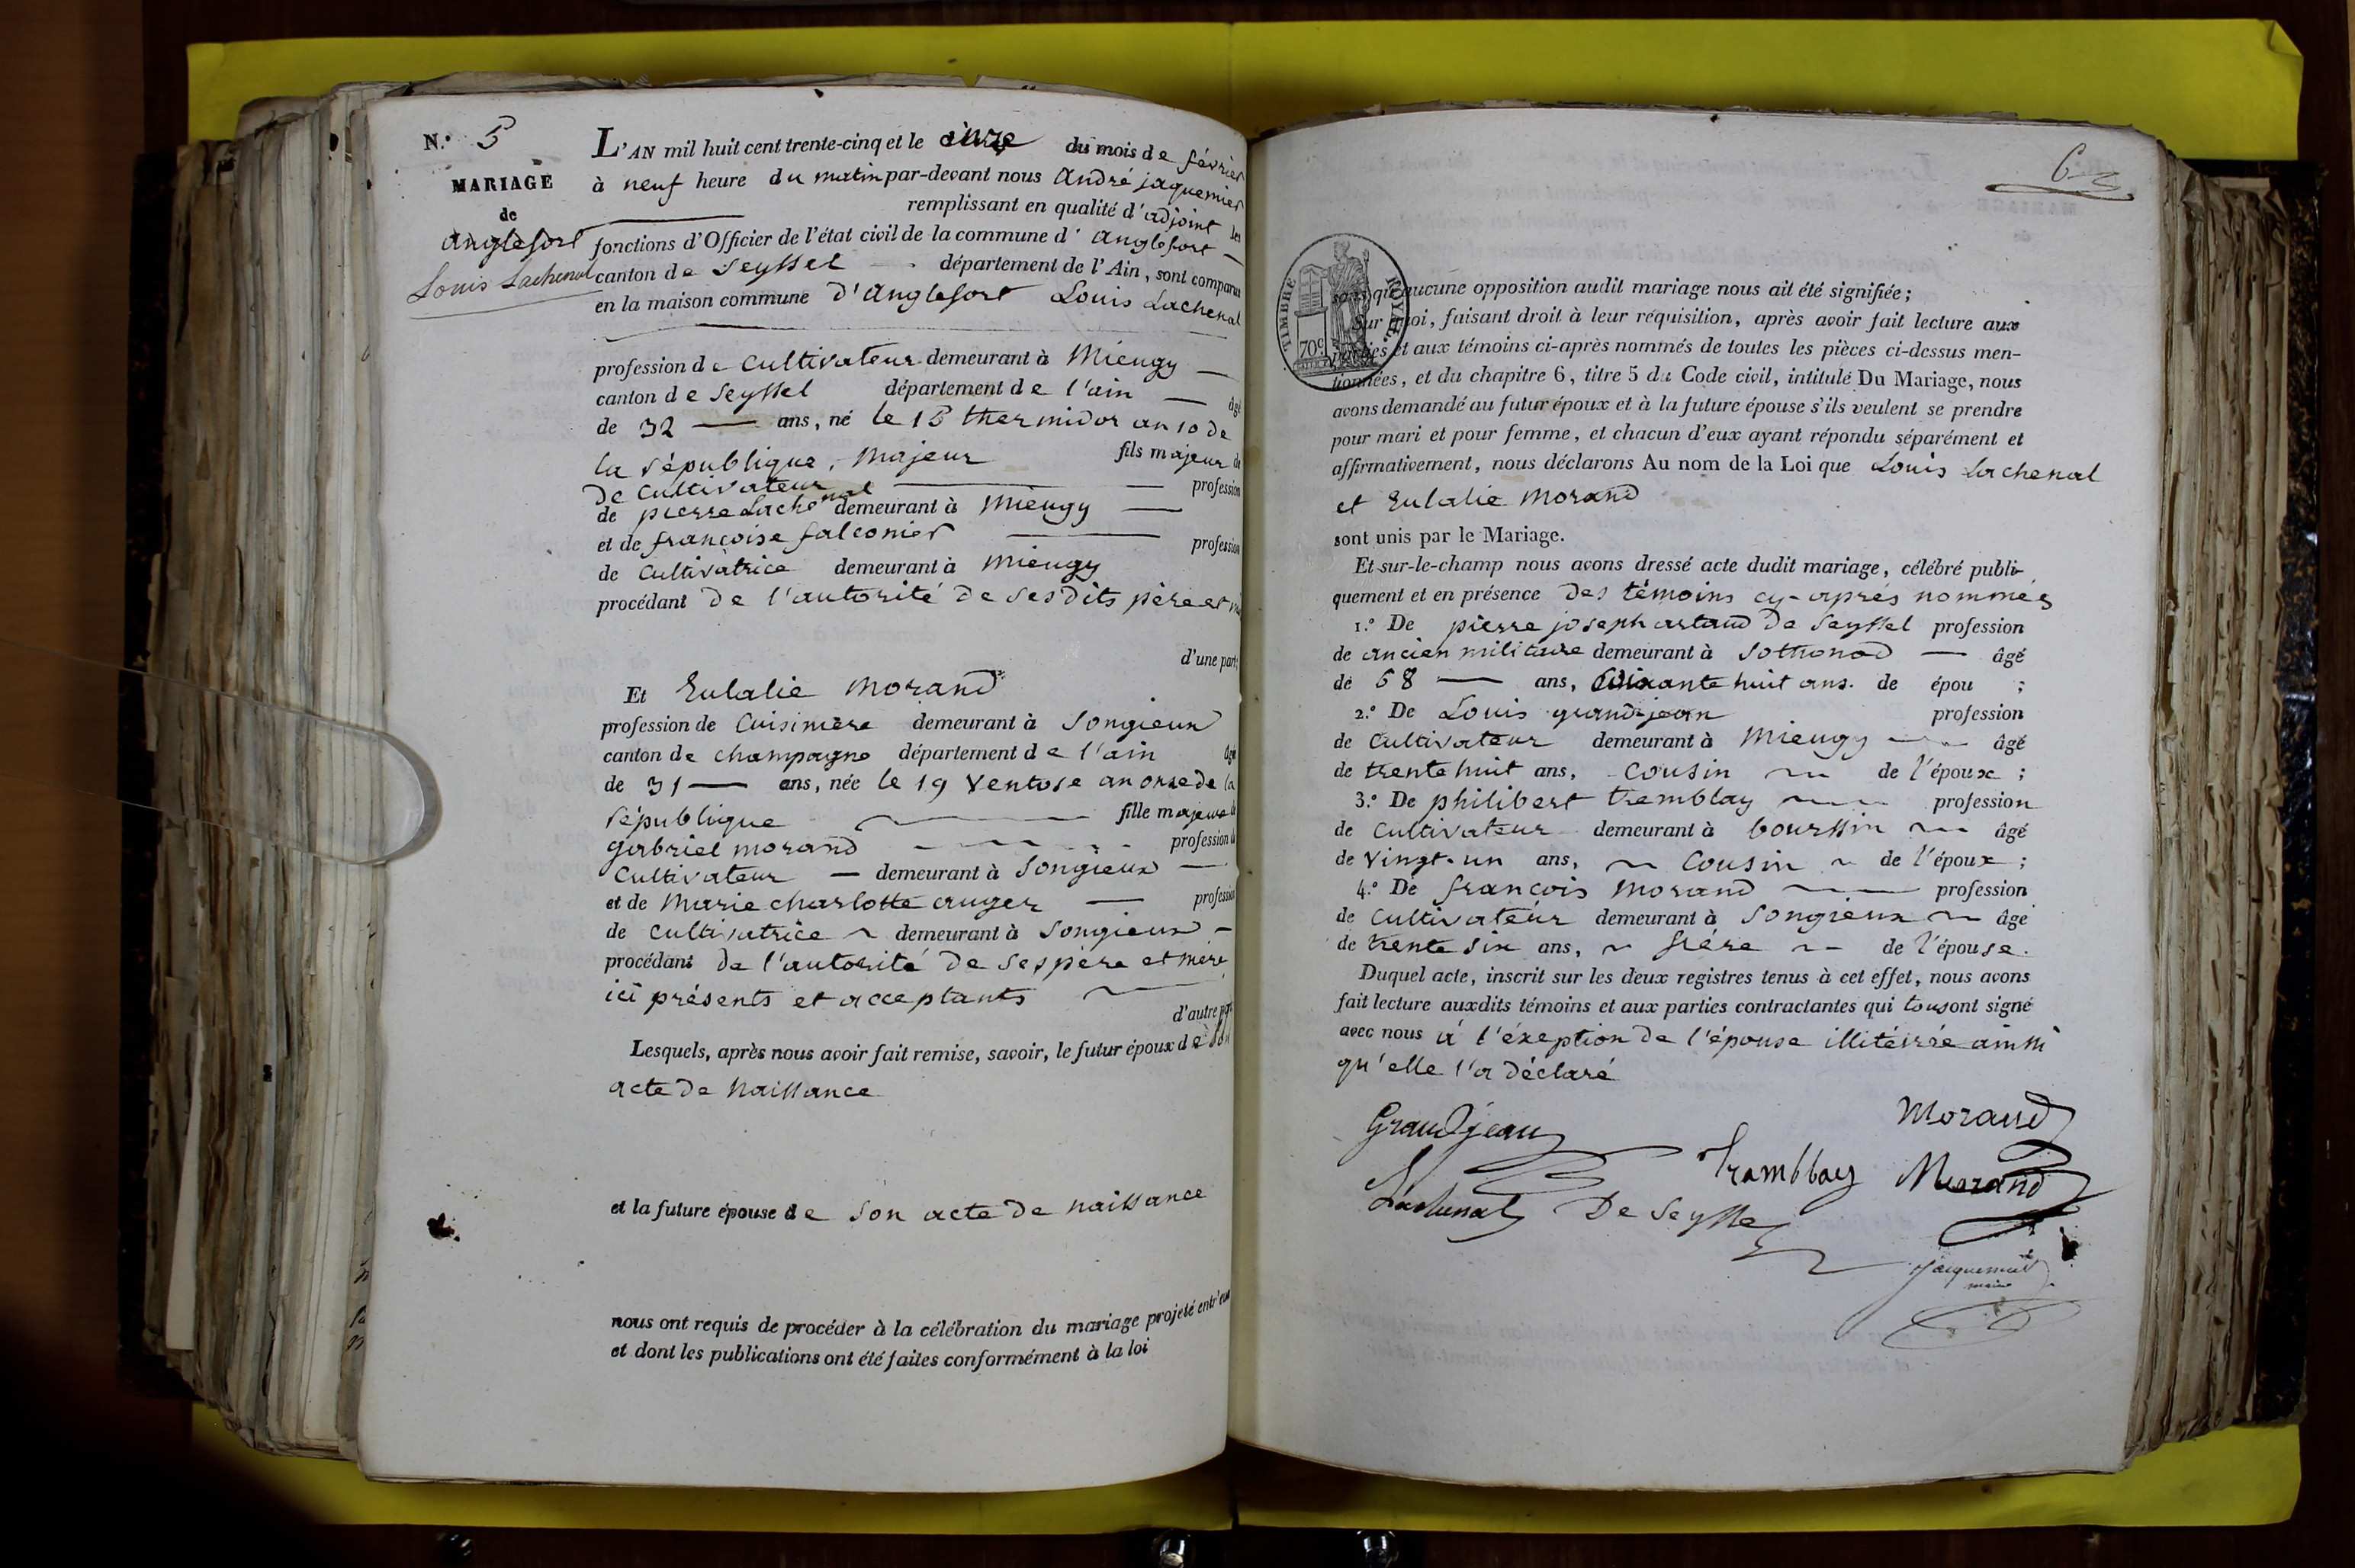 N.° 5
MARIAGE
de
Anglefort
Louis Lachenal
L'AN mil huit cent trente-cinq et le onze du mois de février
à neuf heure du matin par-devant nous André jaquemier
remplissant en qualité d'adjoint les
fonctions d'Officier de l'état civil de la commune d' anglefort
canton de Seyssel département de l'Ain, sont comparus
en la maison commune d'Anglefort Louis Lachenal
profession de Cultivateur demeurant à Mieugy
canton de Seyssel département de l'ain âgé
de 32 ans, né le 15 thermidor an 10 de
la république, majeur fils majeur de
De Cultivateur profession
de pierre Lachenal demeurant à mieugy
et de françoise falconier profession
de Cultivatrice demeurant à mieugy
procédant De l'autorité De ses Dits père et
d'une part;
Et Eulalie Morand
profession de Cuisinière demeurant à Songieux
canton de champagne département de l'ain âgé
de 31 ans, née le 19 Ventose an onse de la
république fille majeure de
gabriel morand profession de
Cultivateur demeurant à Songieux
et de Marie charlotte cruger profession
de Cultivatrice demeurant à Songieux
procédant de l'autorité de ses père et mère
ici présents et acceptants
d'autre part
Lesquels, après nous avoir fait remise, savoir, le futur époux de Son
acte De Naissance
et la future épouse de Son acte De naissance
nous ont requis de procéder à la célébration du mariage projeté entr'eux
et dont les publications ont été faites conformément à la loi
6
TIMBRE ROYAL
70c
sans qu'aucune opposition audit mariage nous ait été signifiée;
Sur quoi, faisant droit à leur réquisition, après avoir fait lecture aux
parties et aux témoins ci-après nommés de toutes les pièces ci-dessus men-
tionnées, et du chapitre 6, titre 5 du Code civil, intitulé Du Mariage, nous
avons demandé au futur époux et à la future épouse s'ils veulent se prendre
pour mari et pour femme, et chacun d'eux ayant répondu séparément et
affirmativement, nous déclarons Au nom de la Loi que Louis Lachenal
et Eulalie Morand
sont unis par le Mariage.
Et sur-le-champ nous avons dressé acte dudit mariage, célébré publi-
quement et en présence Des témoins cy-après nommés
1.° De pierre joseph artaud De Seyssel profession
de ancien militaire demeurant à Sothonod âgé
de 68 ans, Soixante huit ans. de épou ;
2.° De Louis grandjean profession
de Cultivateur demeurant à Mieugy âgé
de trente huit ans, Cousin de l'époux ;
3.° De philibert tremblay profession
de Cultivateur demeurant à bourssin âgé
de Vingt-un ans, Cousin de l'époux ;
4.° De françois Morand profession
de Cultivateur demeurant à Songieux âgé
de trente six ans, frére de l'épouse.
Duquel acte, inscrit sur les deux registres tenus à cet effet, nous avons
fait lecture auxdits témoins et aux parties contractantes qui tous ont signé
avec nous à l'éxeption De l'épouse illitérée ainssi
qu'elle l'a Déclaré
Morand
Grandjean
Tramblay Morand
Lachenal De Seyssel
Jacquemier
maire